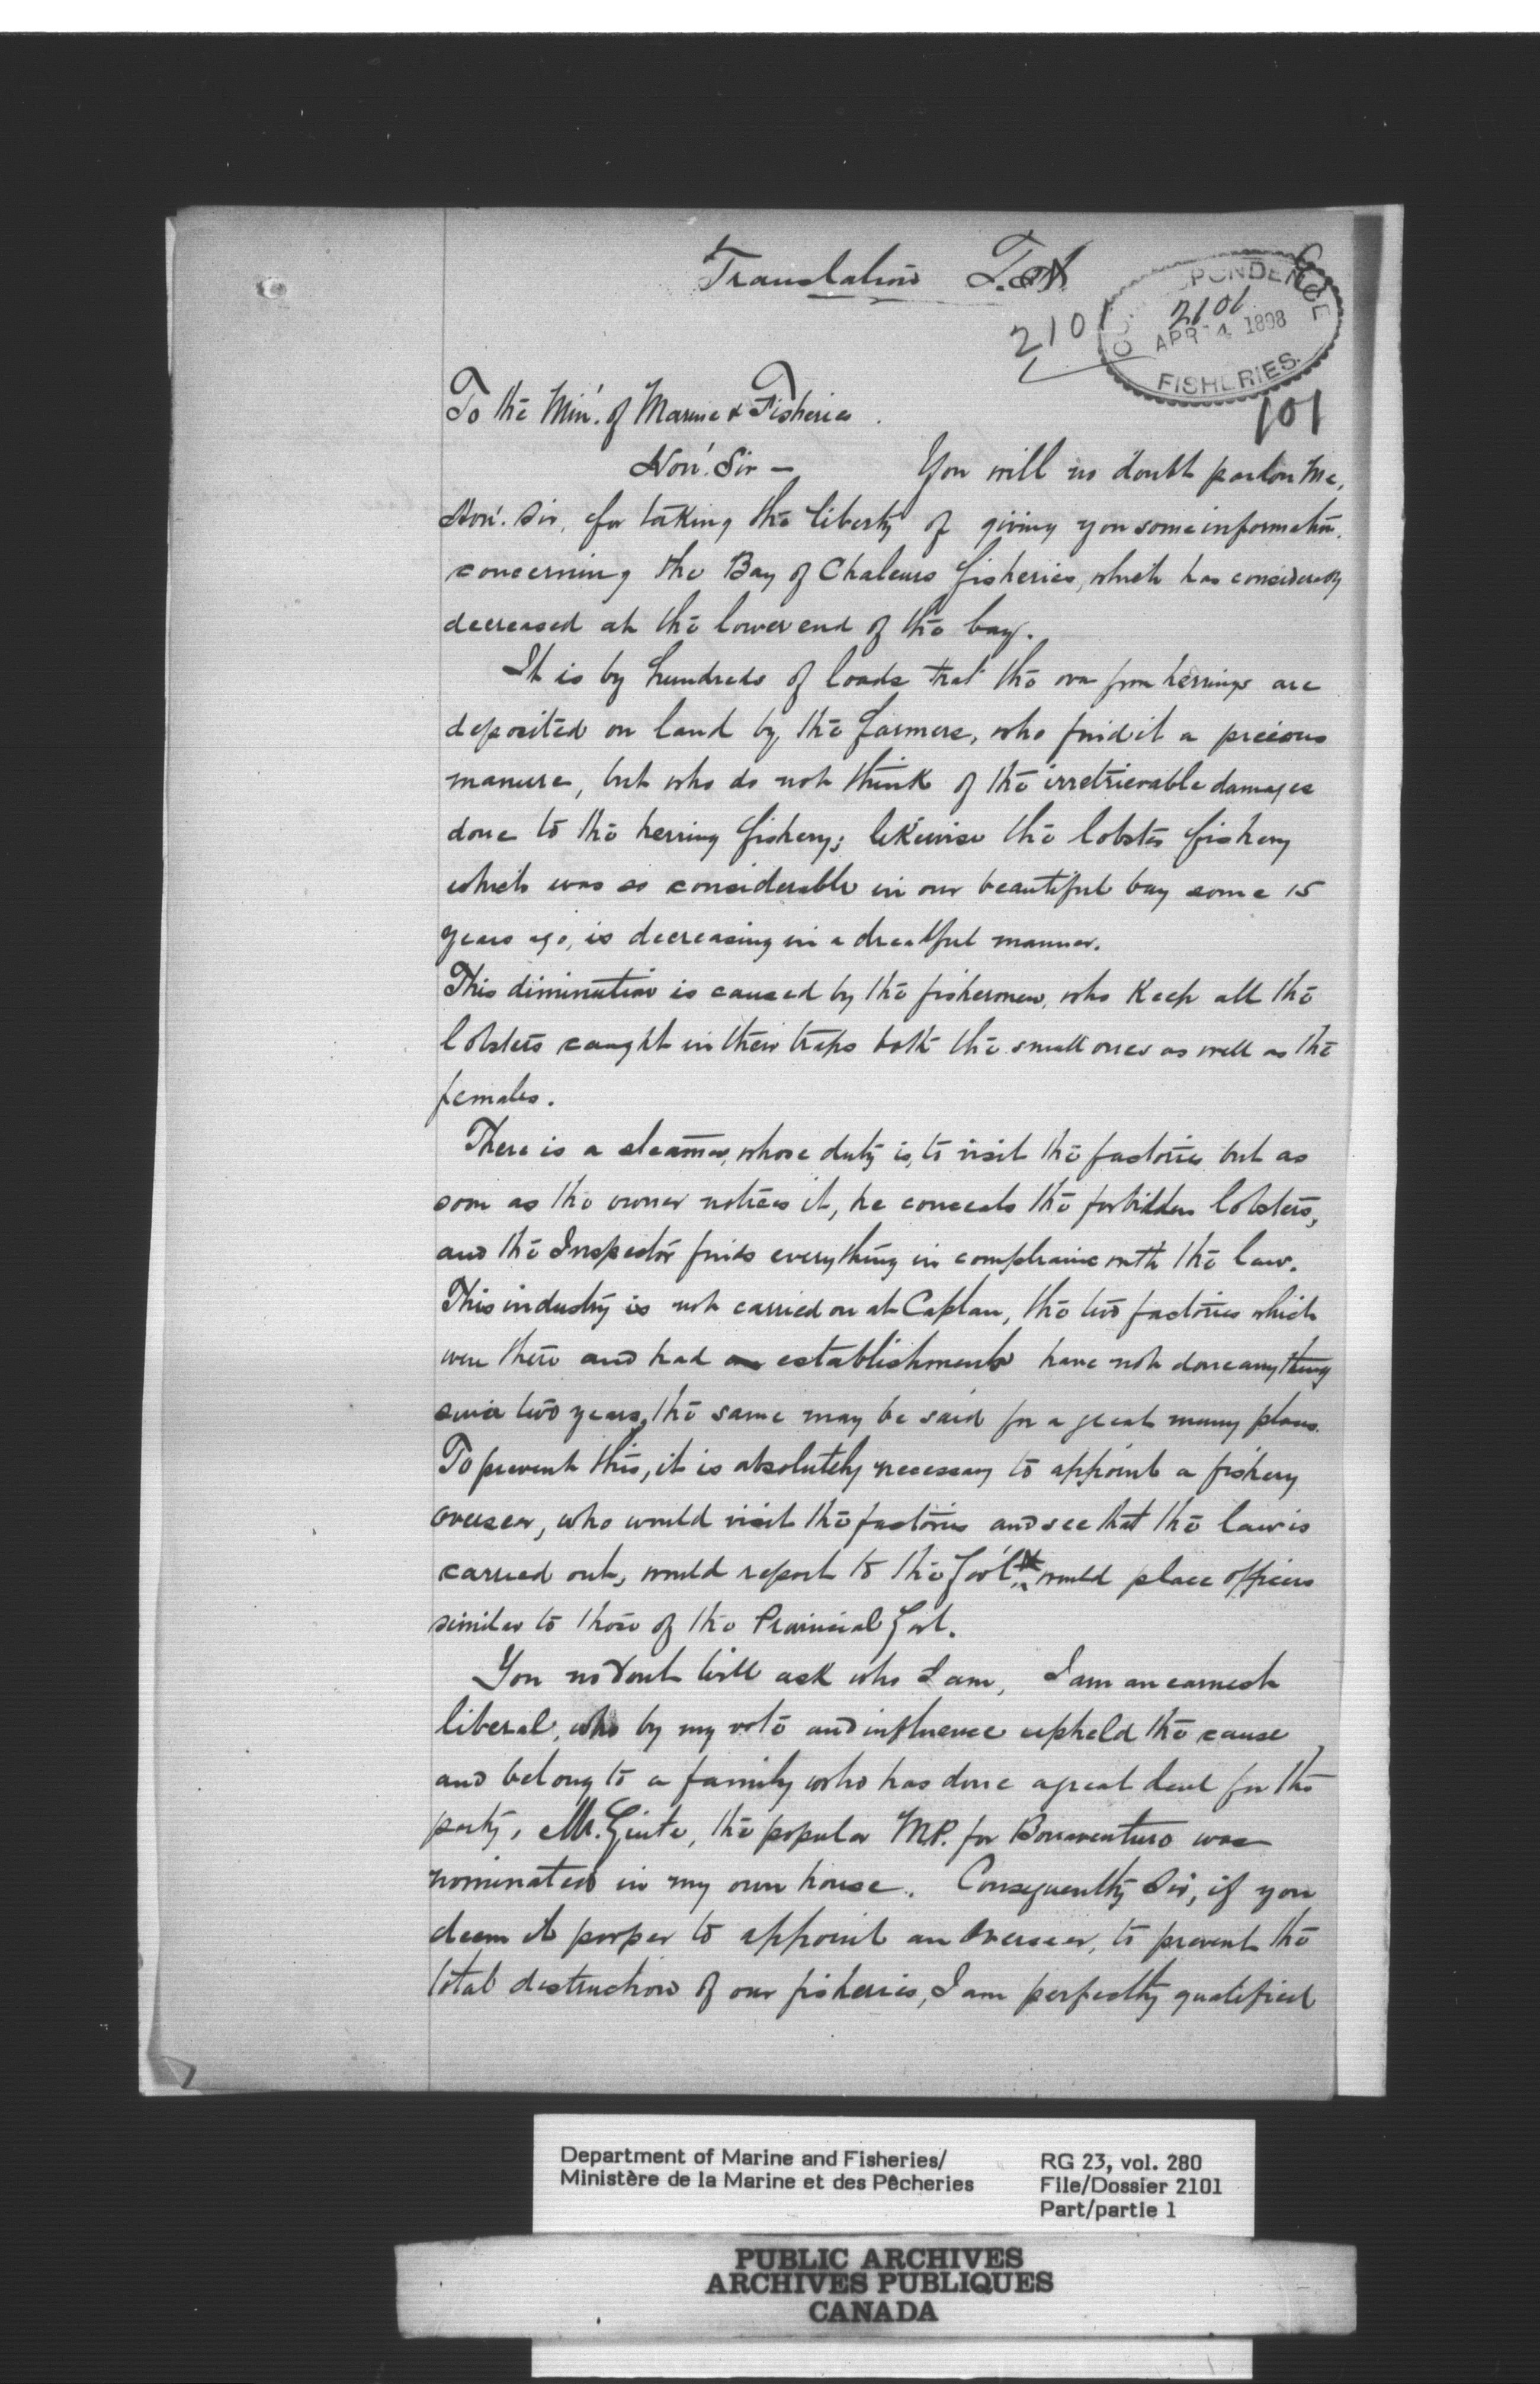 Translation
2101
CORRESPONDENCE
2101
APR 14 1898
FISHERIES.
101
To the Min'. of Marine & Fisheries.
Hon'. Sir — You will no doubt pardon me,
Hon'. Sir, for taking the liberty of giving you some information
concerning the Bay of Chaleurs fisheries, which has considerably
decreased at the lower end of the bay.
It is by hundreds of loads that the ova from herrings are
deposited on land by the farmers, who find it a precious
manure, but who do not think of the irretrievable damages
done to the herring fishery; likewise the lobster fishery
which was so considerable in our beautiful bay some 15
years ago, is decreasing in a dreadful manner.
This diminution is caused by the fishermen, who keep all the
lobsters caught in their traps both the small ones as well as the
females.
There is a steamer, whose duty is, to visit the factories but as
soon as the owner notices it, he conceals the forbidden lobsters,
and the Inspector finds everything in compliance with the law.
This industry is not carried on at Caplan, the two factories which
were there and had establishments have not done anything
since two years, the same may be said for a great many places.
To prevent this, it is absolutely necessary to appoint a fishery
overseer, who would visit the factories and see that the law is
carried out, would report to the Gov't would place officers
similar to those of the Provincial Govt.
You no dout will ask who I am, I am an earnest
liberal, who by my vote and influence upheld the cause
and belong to a family who has done a great deal for the
party, Mr. Guite, the popular M.P. for Bonaventure was
nominated in my own house. Consequently Sir, if you
deem it proper to appoint an Overseer, to prevent the
total destruction of our fisheries, I am perfectly qualified
Department of Marine and Fisheries/
Ministère de la Marine et des Pêcheries
RG 23, vol. 280
File/Dossier 2101
Part/partie 1
PUBLIC ARCHIVES
ARCHIVES PUBLIQUES
CANADA